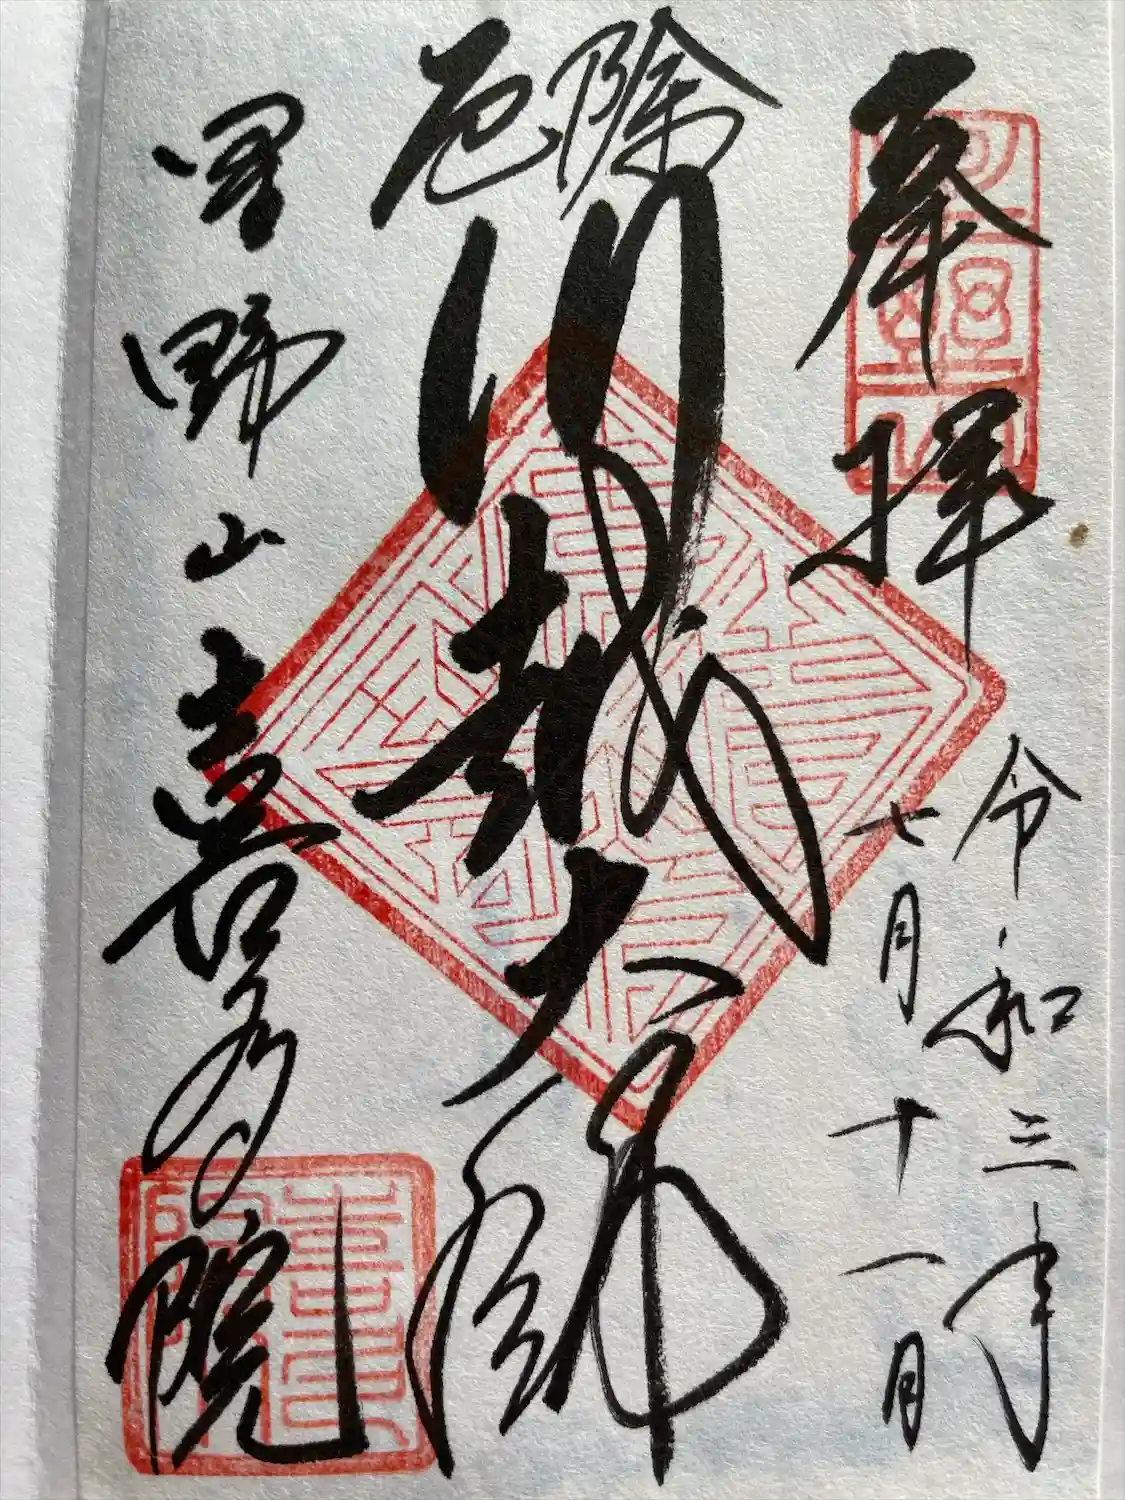 奉拝
令和三年
七月十一日
厄除
川越大師
星野山喜多院
喜多
院印